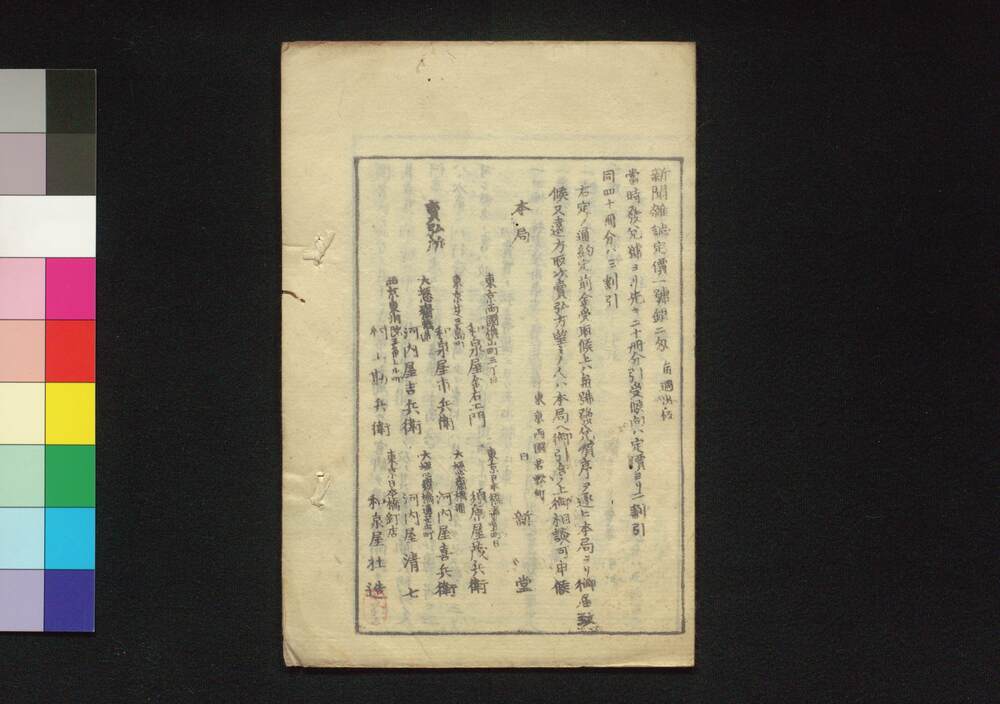 新聞雜誌定價一號銀二匁 毎週出板
當時發兌號ヨリ先キ二十冊分引受時尚ハ定價ヨリ二割引
同四十冊分ハ三割引
右定ノ通約定前金受取候上ハ毎號發兌順序ヲ逐ヒ本局ヨリ御届致
候又遠方取次賣弘方望ミノ人ハ本局ヘ御引合ノ上御相談可申候
東京両國若松町
本局 日新堂
賣弘所
東京両國横山町三丁目
和泉屋金右エ門
東京日本橋通壹丁目
須原屋茂兵衛
東京芝三島町
和泉屋市兵衛
河内屋喜兵衛
河内屋吉兵衛
河内屋清七
村上勘兵衛
東京日本橋釘店
和泉屋壯造